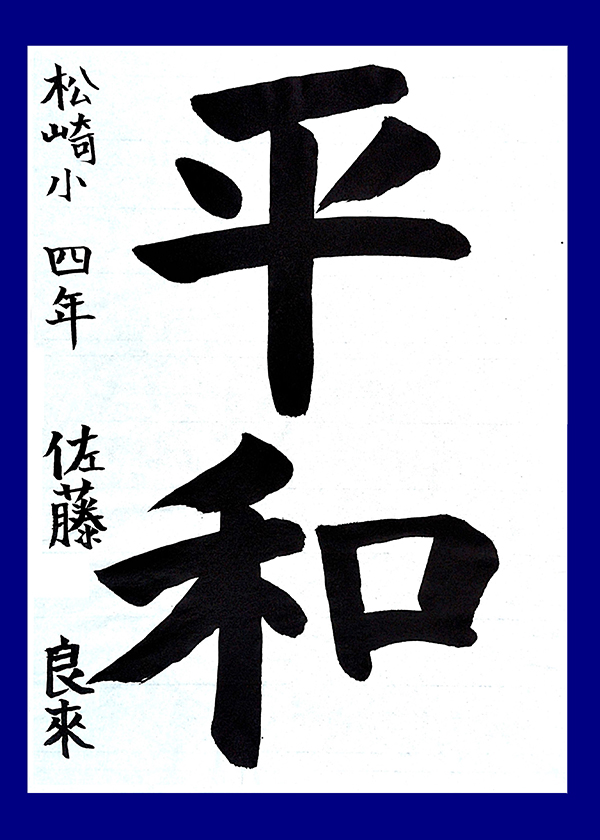 平和
松崎小 四年 佐藤 良來